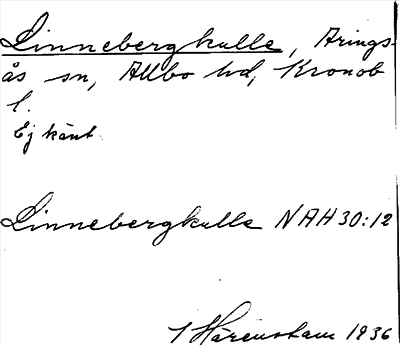 Linnebergkulle, Arings-
ås sn, Allbo hd, Kronob
l.
Ej känt
Linnebergkulle NAH 30:12
Härenstam 1936